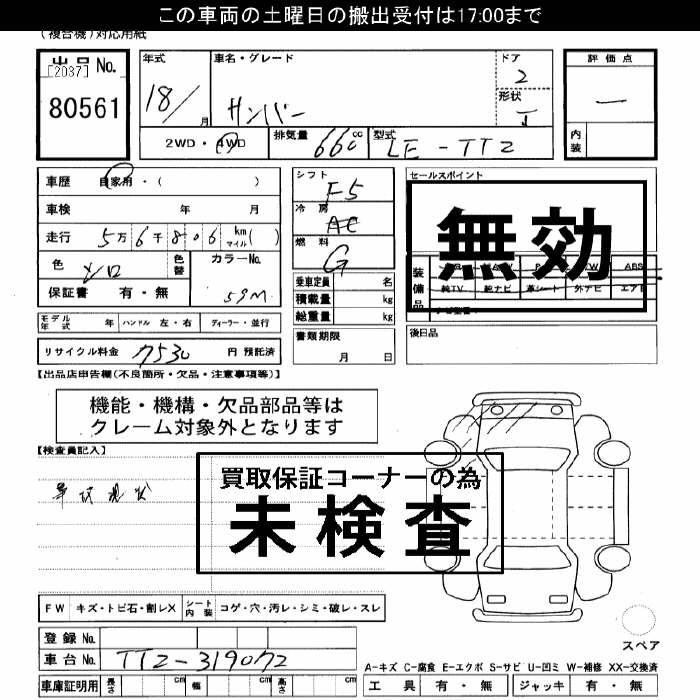 この車両の土曜日の搬出受付は17:00まで
(複合機)対応用紙
出品No.
[2037]
80561
年式
18/
月
車名・グレード
サンバー
ドア
2
形状
評価点
内装
2WD・4WD
排気量
660
cc
型式
LE-TT2
車歴
自家用・( )
車検
年
月
走行
5万6千806
km
マイル
( )
色
シロ
色替
カラーNo.
59M
保証書
有・無
モデル年式
年
ハンドル
左・右
ディーラー・並行
リサイクル料金
7530
円
預託済
シフト
F5
冷房
AC
燃料
G
乗車定員
名
積載量
kg
総重量
kg
書類期限
月
日
セールスポイント
無効
装備品
ABS
純TV
純ナビ
革シート
外ナビ
エアB
後日品
【出品店申告欄(不良箇所・欠品・注意事項等)】
機能・機構・欠品部品等は
クレーム対象外となります
【検査員記入】
車両現状
買取保証コーナーの為
未検査
FW
キズ・トビ石・割レX
シート内装
コゲ・穴・汚レ・シミ・破レ・スレ
登録No.
車台No.
TT2-319072
車庫証明用
長さ
cm
幅
cm
高さ
cm
スペア
A-キズ C-腐食 E-エクボ S-サビ U-凹ミ W-補修 XX-交換済
工具
有・無
ジャッキ
有・無